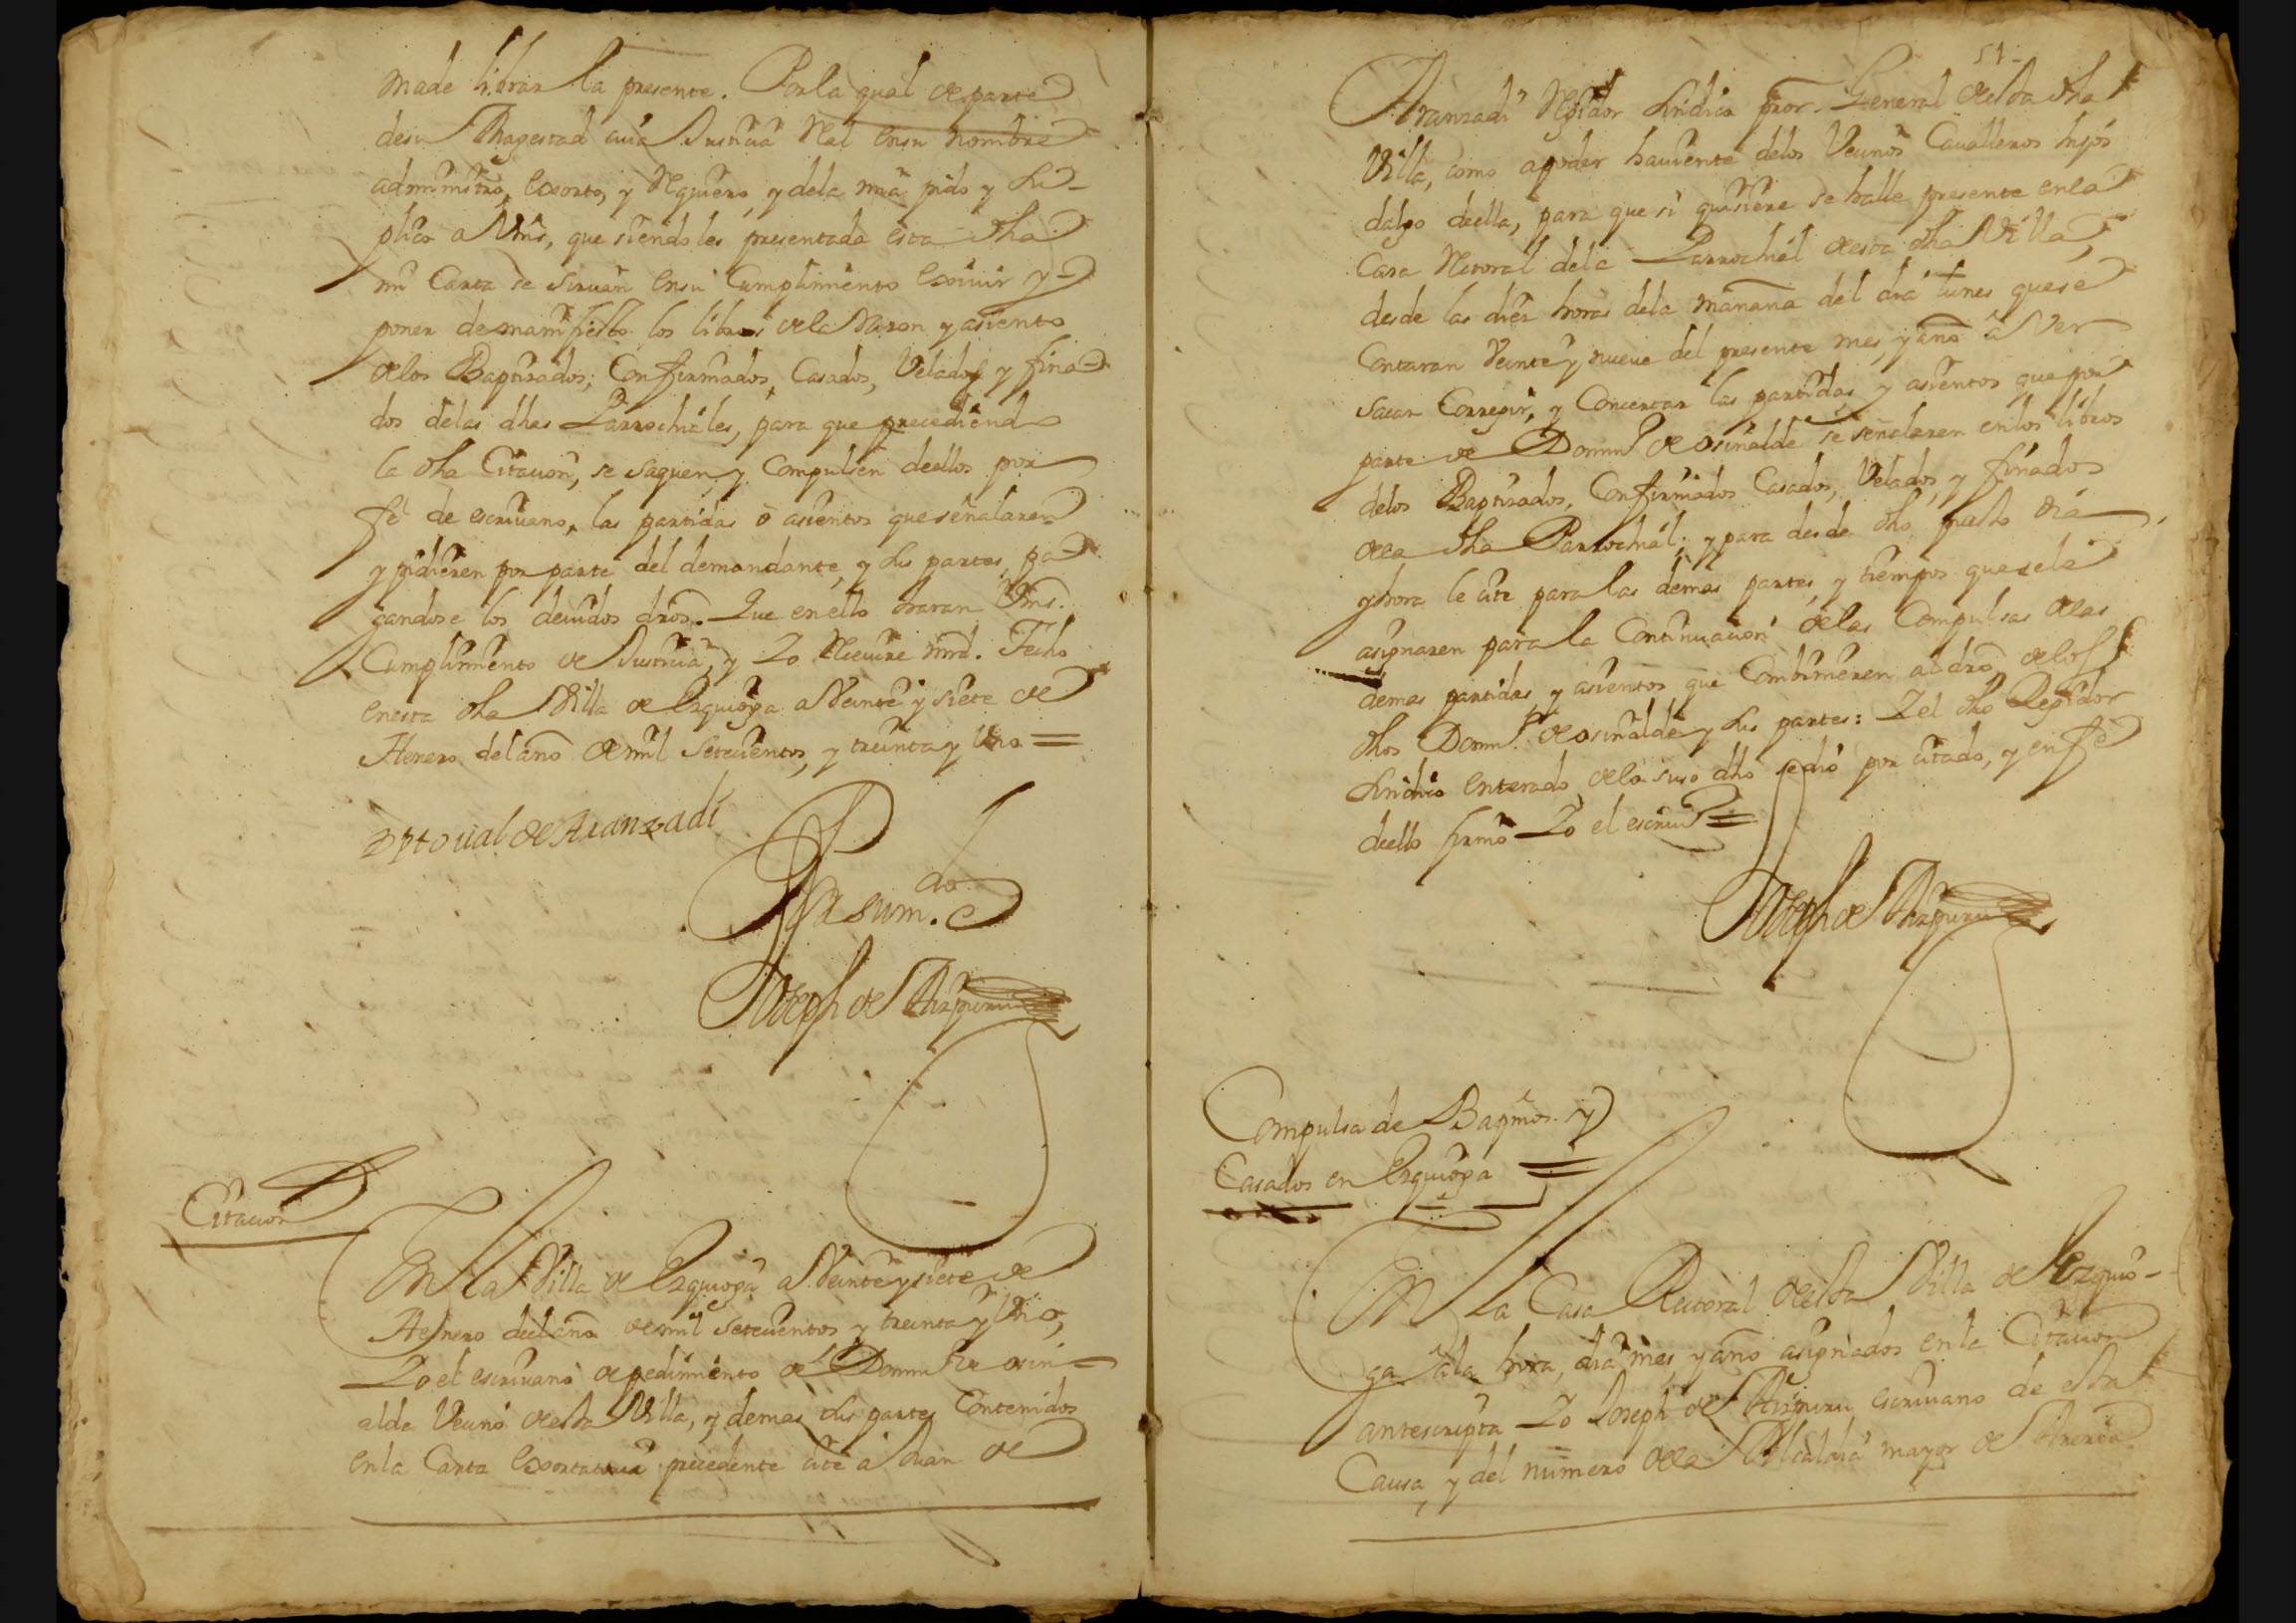 made librar la presente. Por la qual de parte
de su Magestad cuia Justicia Rl en su nombre
administro, exorto, y requiero, y dela mia pido y su-
plico a Vms, que siendoles presentada esta dha
mi Carta se siruan en su Cumplimiento exiuir y
poner de manifiesto los libros dela Razon y asiento
delos Baptizados, Confirmados, Casados, Velados y fina-
dos delas dhas Parrochiales, para que precediendo
la dha Citacion, se saquen y Compulsen dellos por
fe de escriuano, las partidas o asientos que señalaren
y pidieren por parte del demandante, y sus partes, pa-
gandose los deuidos dros. Que en ello haran Vms.
Cumplimiento de Justicia, y Yo Reciuire mrd. Fecho
en esta dha Villa de Ezquioga a Veinte y siete de
Henero del año de mil Setecientos, y treinta y Vno =
de Aranzadi
Por su mdo
Joseph de Aizpuru
Citacion
En la Villa de Ezquioga a Veinte y siete de
Henero del año de mil setecientos y treinta y Vno,
Yo el escriuano de pedimiento de Domin de osin-
alde Vecino desta Villa, y demas sus partes Contenidos
en la Carta exortatoria precedente cite a Juan de
51
Aranzadi Regidor Sindico pror General desta dha
Villa, como apoder hauiente delos Vecinos Caualleros hijos
dalgo della, para que si quisiere se halle presente en la
Casa Retoral dela Parrochial desta dha Villa,
desde las diez horas dela mañana del dia lunes que se
Contaran Veinte y nueue del presente mes, y año a Ver
sacar Corregir, y Concertar las partidas, y asientos que por
parte de Domin de osinalde se señalaren en los libros
delos Baptizados, Confirmados Casados, Velados, y finados
dela dha Parrochial; y para desde dho puesto dia
y hora le cite para las demas partes, y tiempos que se le
asignaren para la Continuacion delas Compulsas delas
demas partidas, y asientos que Combinieren al dro delos
dhos Domin de osinalde y sus partes: Y el dho Regidor
Sindico enterado delo suso dho se dio por citado, y en fe
dello firmo Yo el escriu =
Joseph de Aizpuru
Compulsa de Bapmos y
Casados en Ezquioga =
En la Casa Rectoral desta Villa de Ezquio-
ga ala hora, dia mes, y año asignados en la Citacion
antescripta Yo Joseph de Aizpuru escriuano de esta
Causa, y del numero dela Alcaldia mayor de Areria